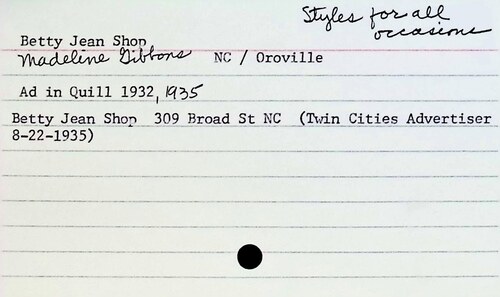 Styles for all
occasions
Betty Jean Shop
Madeline Gibbons NC / Oroville
Ad in Quill 1932, 1935
Betty Jean Shop 309 Broad St NC (Twin Cities Advertiser
8-22-1935)